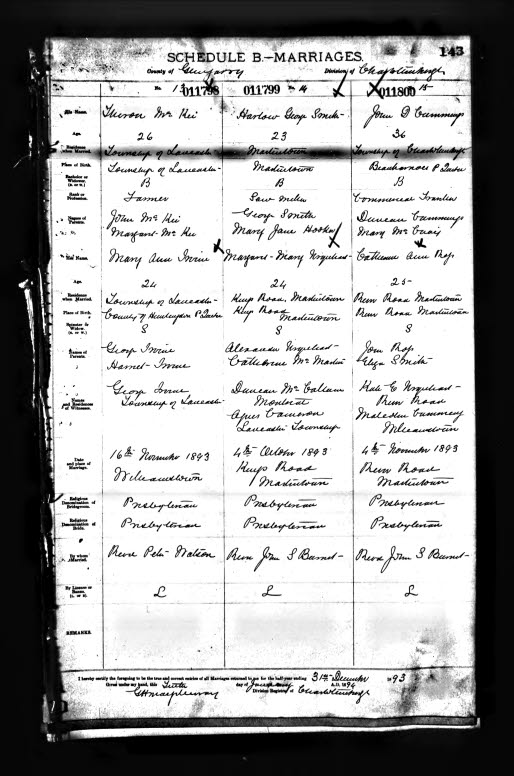 143
SCHEDULE B.—MARRIAGES.
County of Glengarry Division of Charlottenburgh
No 13 011798 011799 14 011800 15
His Name. Theron Harlow George Smith John D Cummings
Age. 26 23 36
Residence when Married. Township of Lancaster Martintown Township of Charlottenburgh
Place of Birth. Township of Lancaster Martintown Beauharnois P Quebec
Bachelor or Widower (B. or W.) B B B
Rank or Profession. Farmer Saw miller Commercial Traveller
Names of Parents. John George Smith Duncan Cummings
Margaret Mary Jane Mary
Her Name. Mary Ann Irvine Margaret Mary Urquhart Catherine Ann
Age. 24 24 25
Residence when Married. Township of Lancaster Kings Road, Martintown River Road Martintown
Place of Birth. County of Huntingdon P Quebec Kings Road Martintown River Road Martintown
Spinster or Widow. S S S
Names of Parents. George Irvine Alexander Urquhart John
Harriet Irvine Catherine McMartin Eliza Smith
Names and Residences of Witnesses. George Irvine Duncan McCallum Kate C Urquhart
Township of Lancaster Montreal River Road
Agnes Cameron Malcolm Cummings
Lancaster Township Williamstown
Date and place of Marriage. 16th November 1893 4th October 1893 4th November 1893
Williamstown Kings Road River Road
Martintown Martintown
Religious Denomination of Bridegroom. Presbyterian Presbyterian Presbyterian
Religious Denomination of Bride. Presbyterian Presbyterian Presbyterian
By whom Married. Revd Peter Watson Revd John S Burnet Revd John S Burnet
By License or Banns. (L. or B.) L L L
REMARKS.
I hereby certify the foregoing to be the true and correct entries of all Marriages returned to me for the half-year ending 31st December 1893
Given under my hand, this Tenth day of January A.D. 1894
Division Registrar of Charlottenburgh